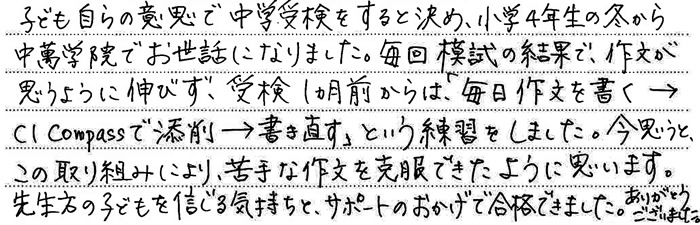 子ども自らの意思で中学受検をすると決め、小学4年生の冬から
中萬学院でお世話になりました。毎回模試の結果で、作文が
思うように伸びず、受検1ヵ月前からは、「毎日作文を書く→
CI Compassで添削→書き直す」という練習をしました。今思うと、
この取り組みにより、苦手な作文を克服できたように思います。
先生方の子どもを信じる気持ちと、サポートのおかげで合格できました。ありがとう
ございました。